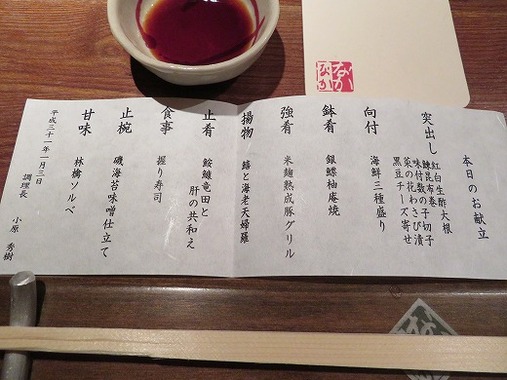 本日のお献立
突出し
紅白生酢大根
鰊昆布巻き
味付数の子切子
菜の花わさび漬
黒豆チーズ寄せ
向付
海鮮三種盛り
鉢肴
銀鱈柚庵焼
強肴
米麹熟成豚グリル
揚物
鱚と海老天婦羅
止肴
鮟鱇竜田と
肝の共和え
食事
握り寿司
止椀
磯海苔味噌仕立て
甘味
林檎ソルベ
平成三十一年一月三日
調理長
小原 秀樹